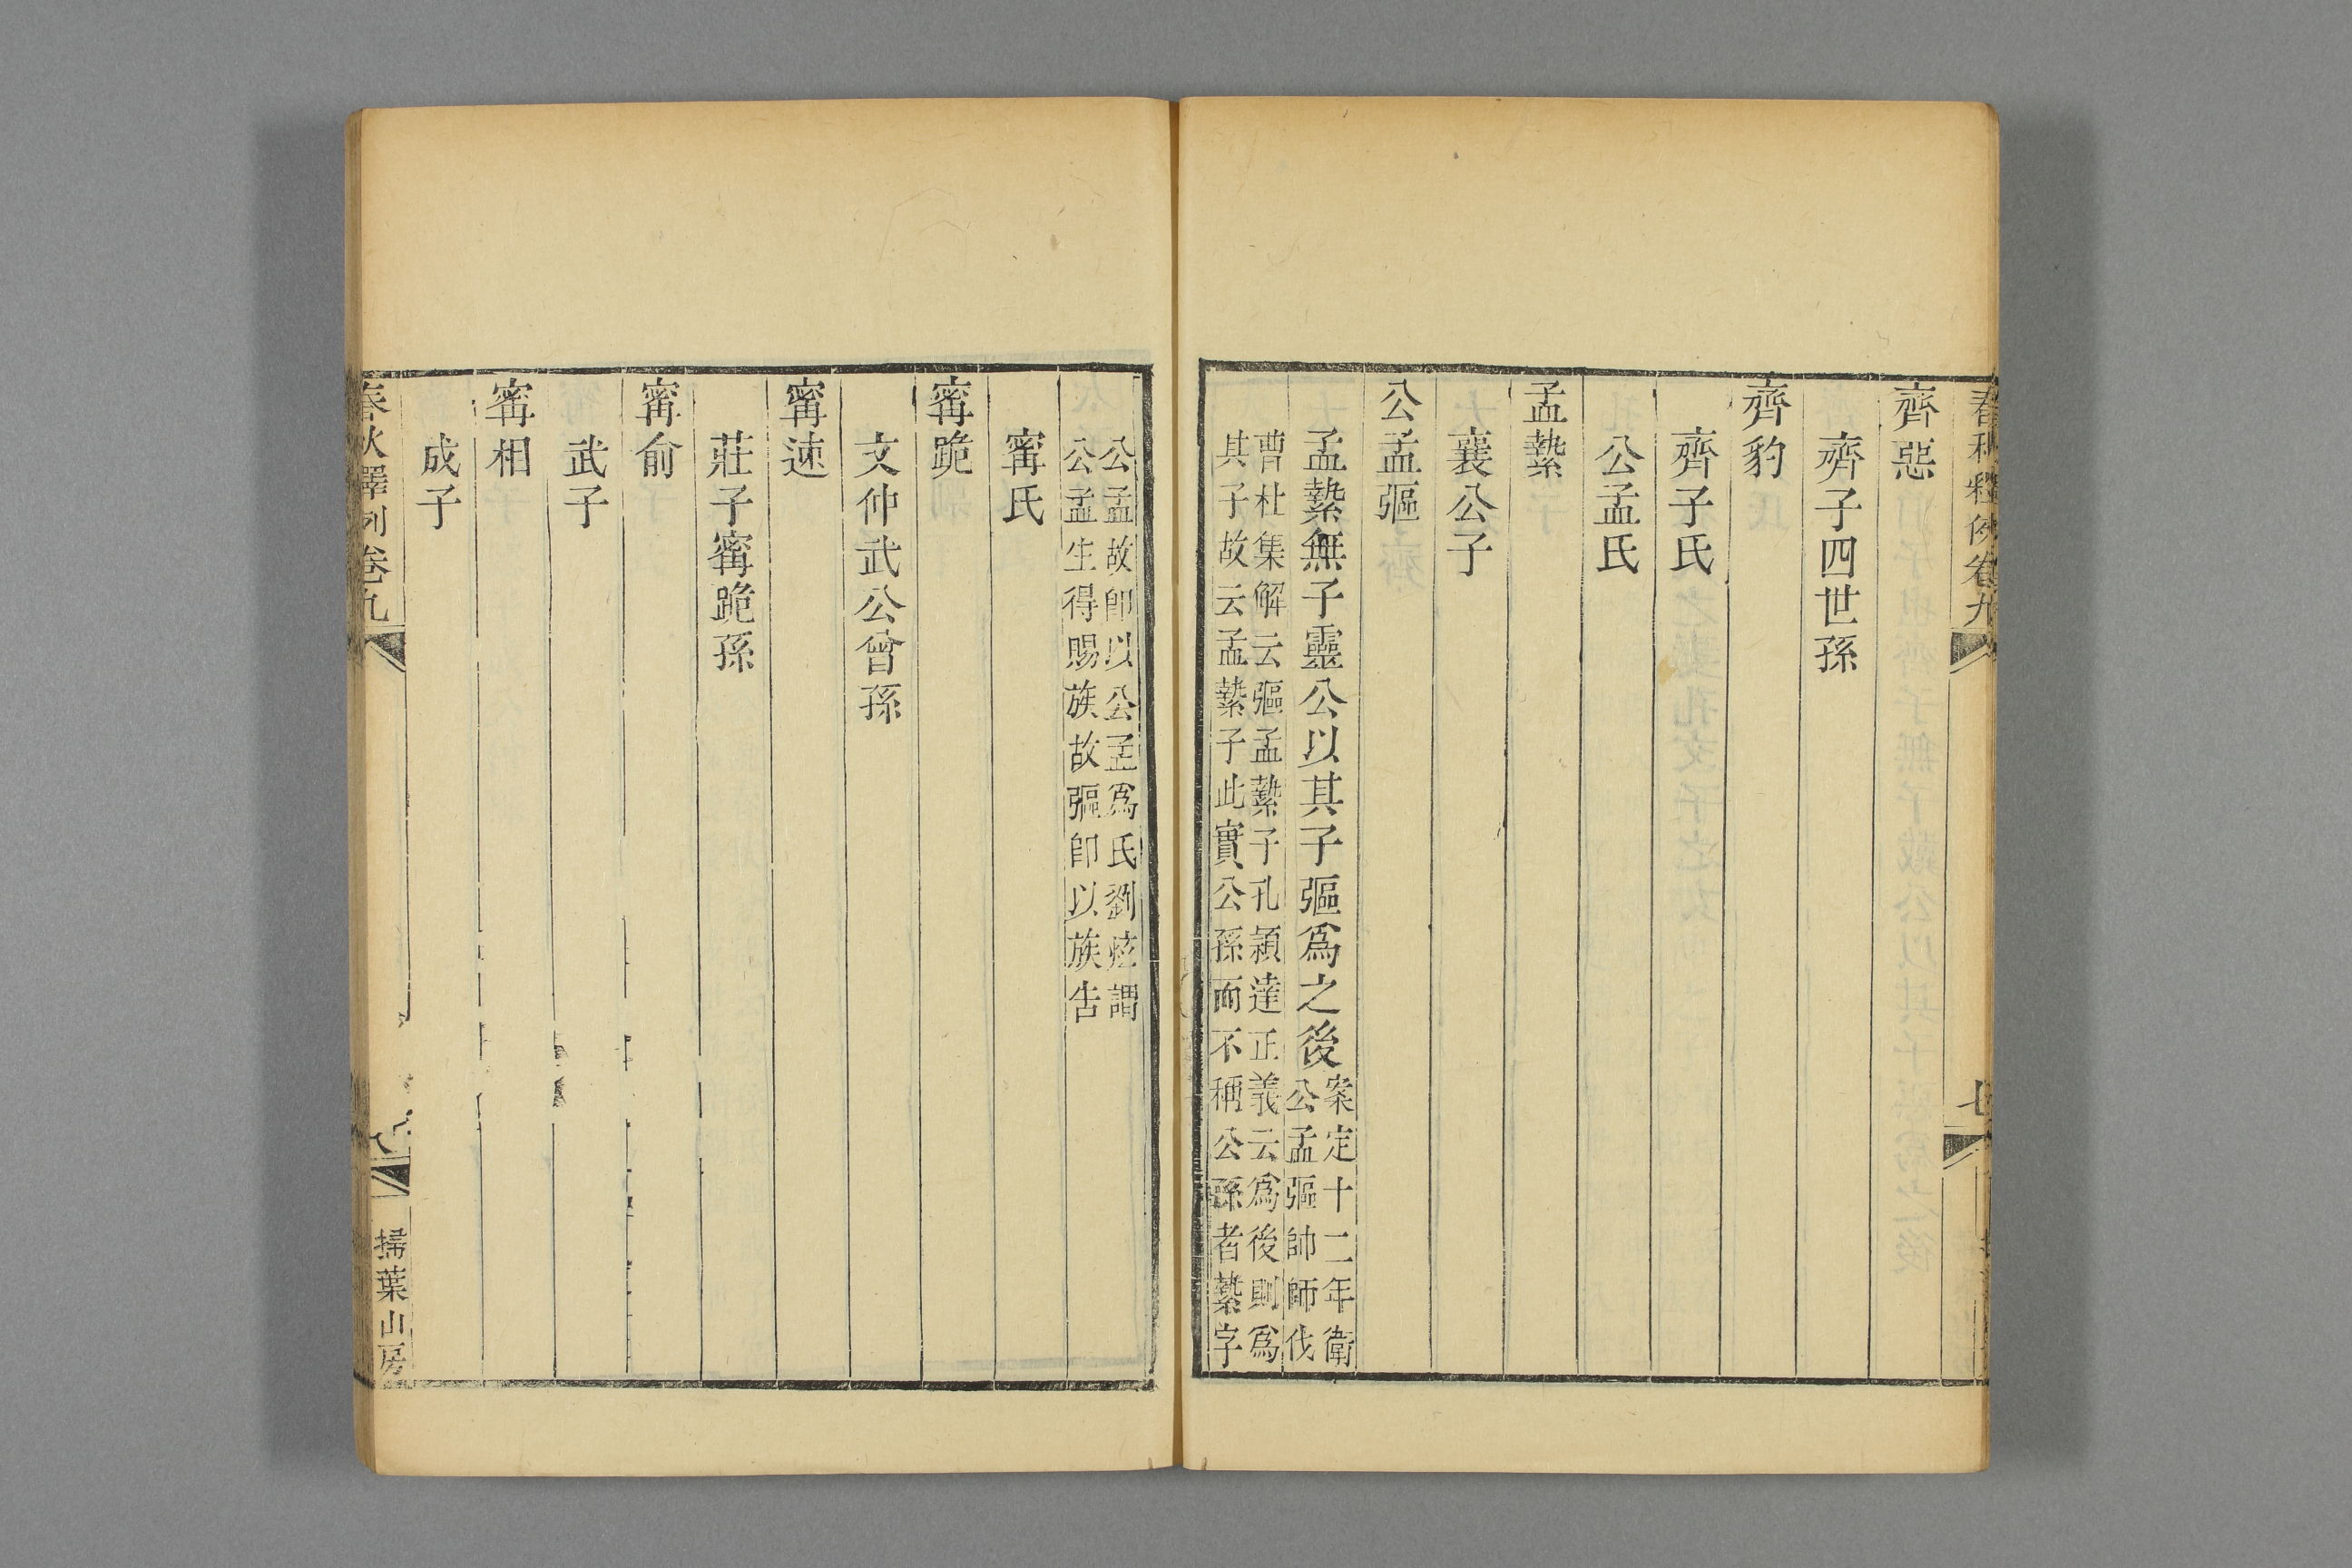 春秋釋例卷九
七
齊惡
齊子四世孫
齊豹
齊子氏
公孟氏
孟縶
襄公子
公孟彄
孟縶無子靈公以其子彄爲之後案定十二年衛
公孟彄帥師伐
曹杜集解云彄孟縶子孔穎達正義云爲後則爲
其子故云孟縶子此實公孫而不稱公孫者縶字
公孟故卽以公孟爲氏劉炫謂
公孟生得賜族故彄卽以族告
甯氏
甯跪
文仲武公曾孫
甯速
莊子甯跪孫
甯俞
武子
甯相
成子
春秋釋例卷九
掃葉山房